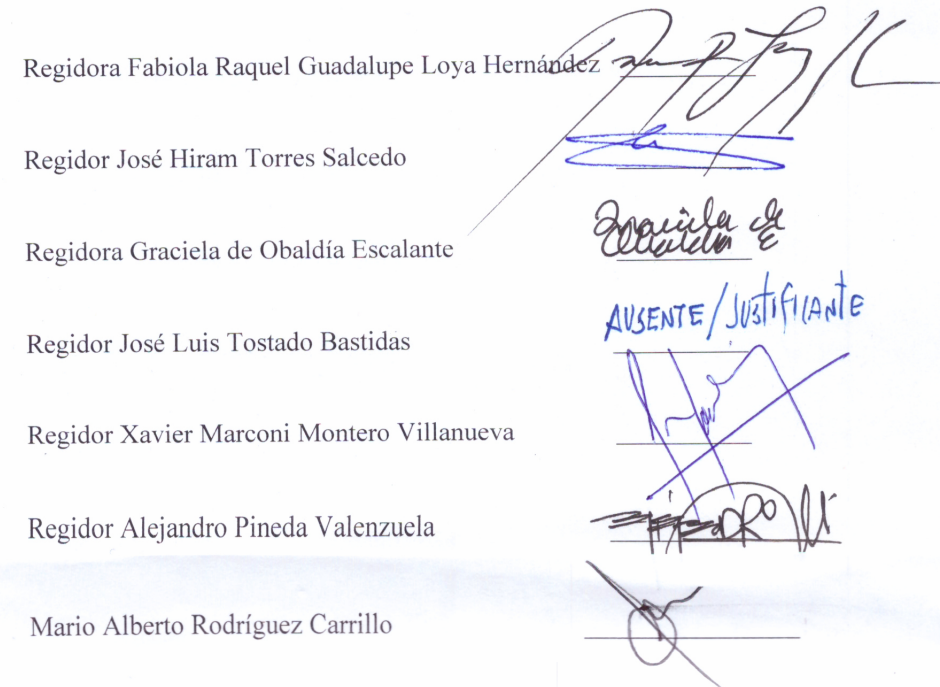 Regidora Fabiola Raquel Guadalupe Loya Hernández
Regidor José Hiram Torres Salcedo
Regidora Graciela de Obaldía Escalante Graciela de
Obaldía E
AUSENTE/JUSTIFICANTE
Regidor José Luis Tostado Bastidas
Regidor Xavier Marconi Montero Villanueva
Regidor Alejandro Pineda Valenzuela
Mario Alberto Rodríguez Carrillo